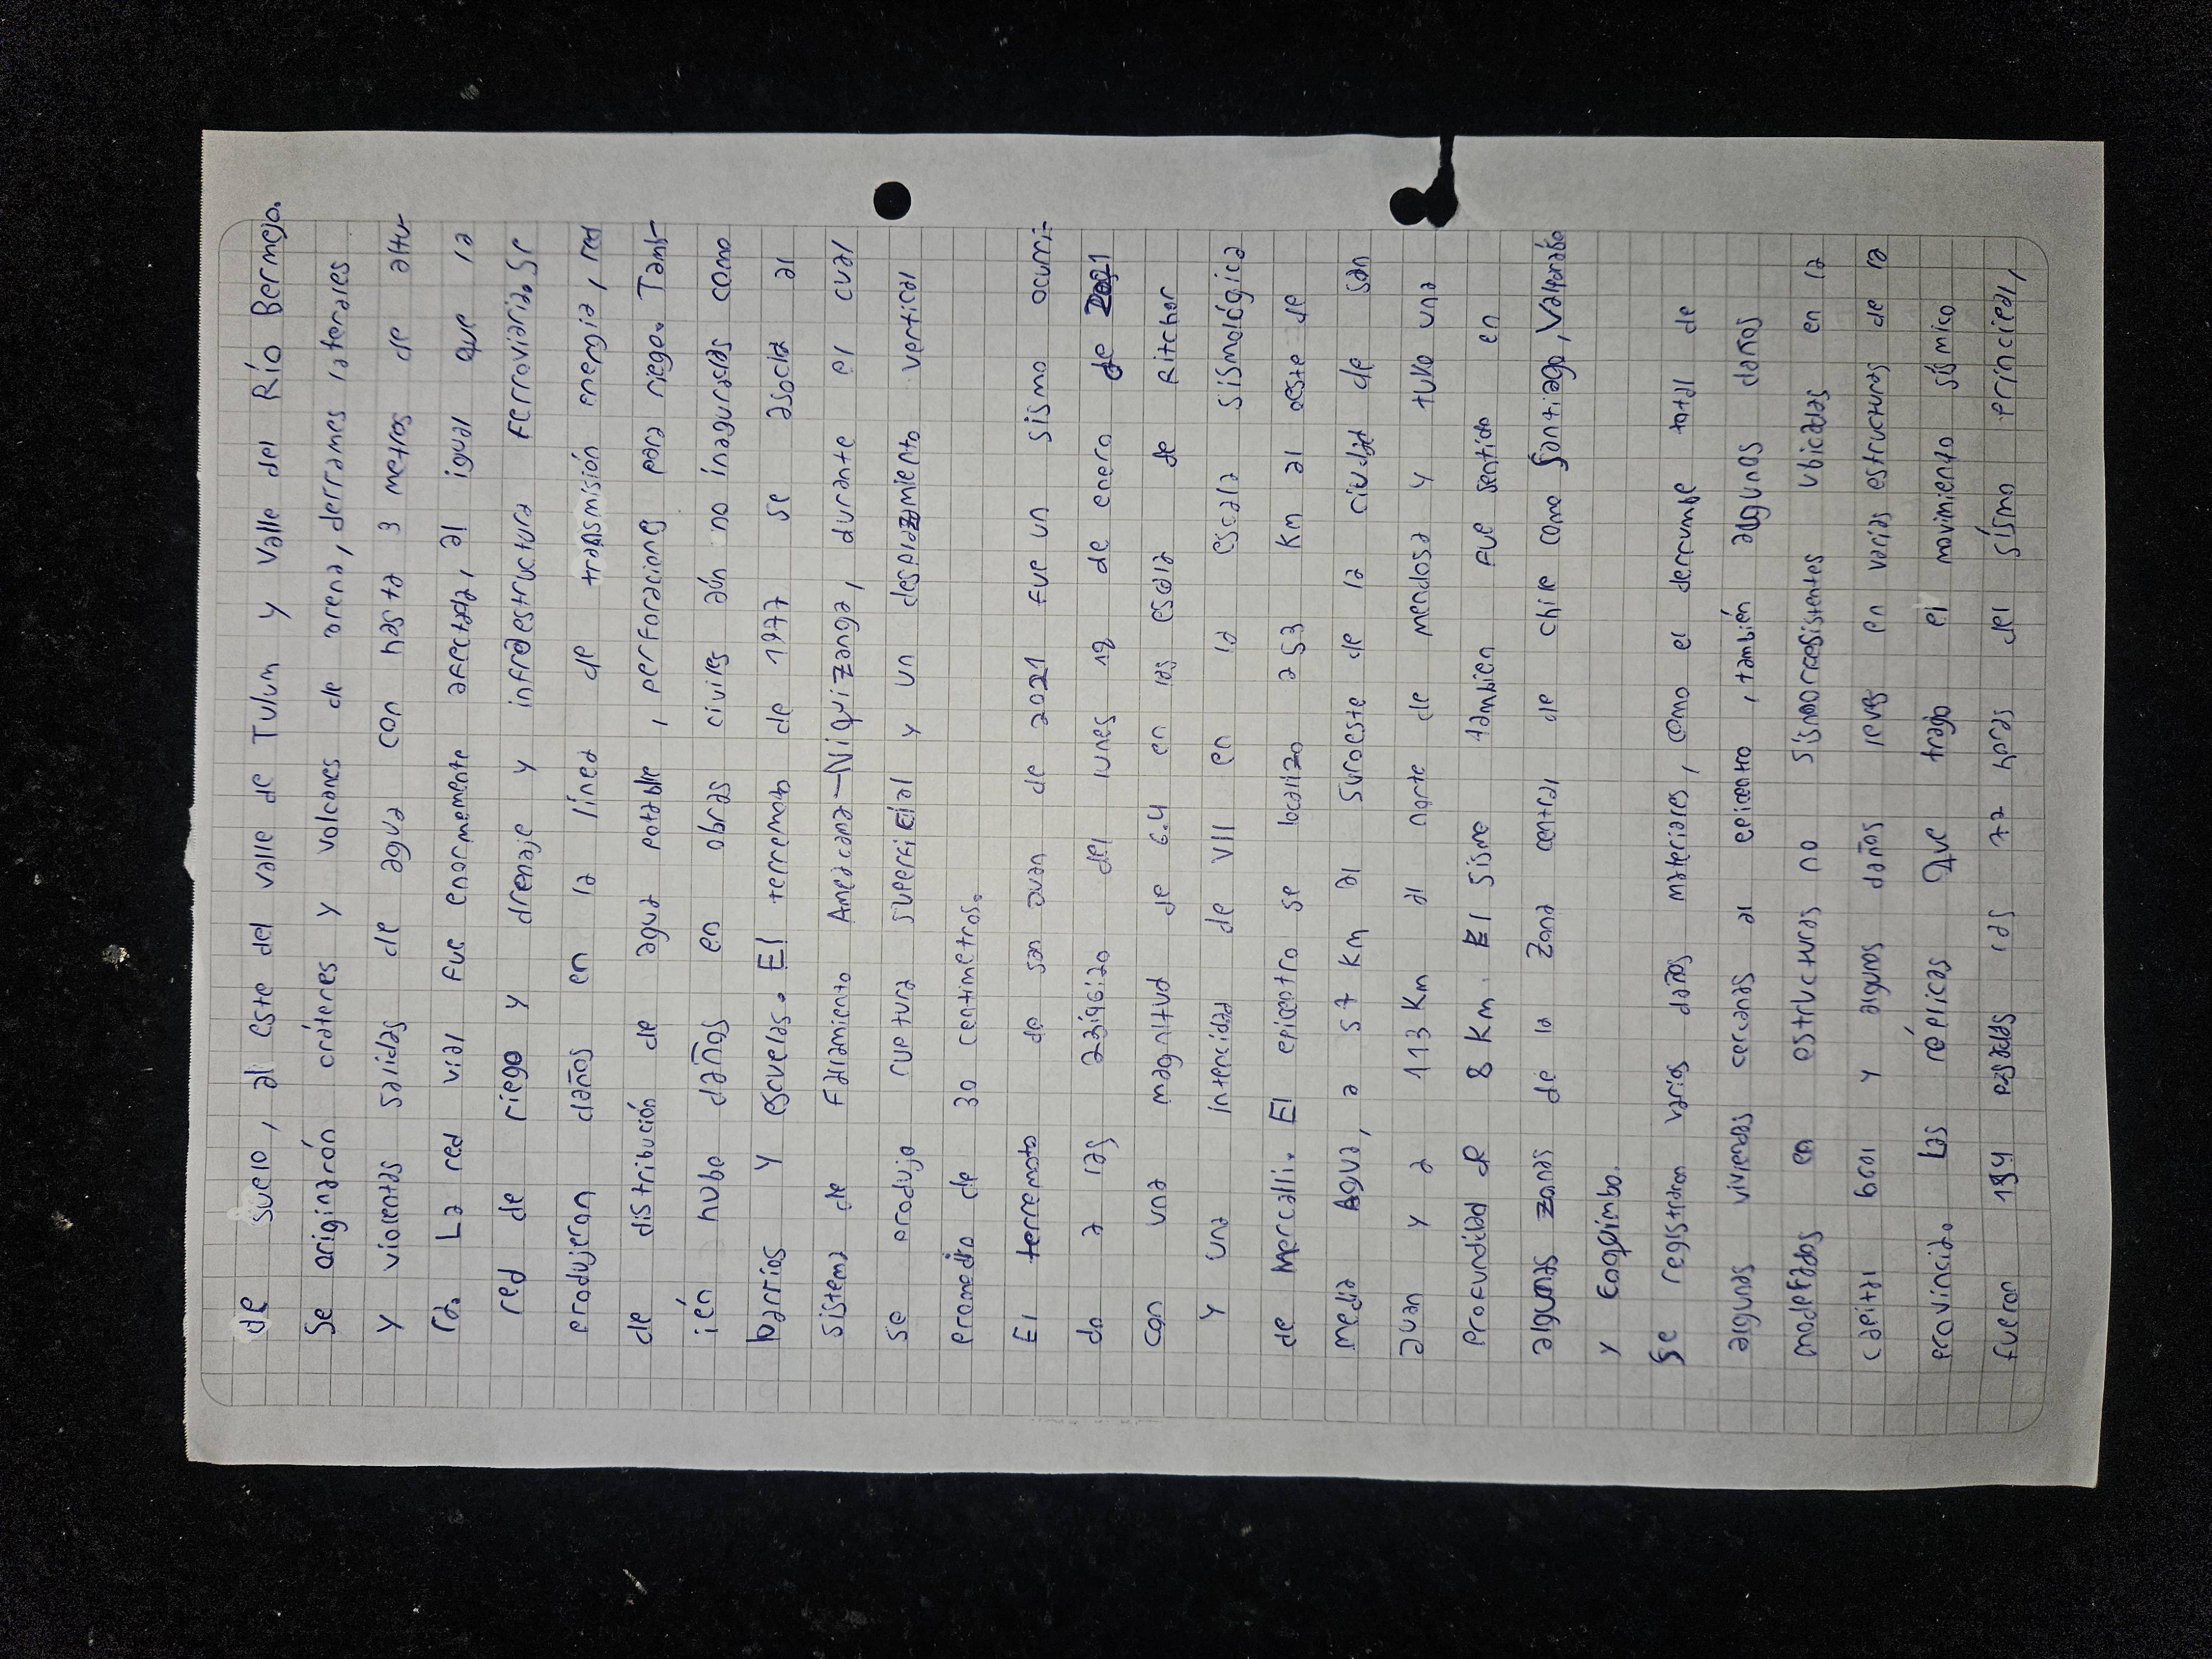 de suelo, al este del valle de Tulum y Valle del Río Bermejo.
Se originarón cráteres y volcanes de arena, derrames laterales
y violentas salidas de agua con hasta 3 metros de altu-
ra. La red vial fue enormemente afectada, al igual que la
red de riego y drenaje y infraestructura ferroviaria. Se
produjeran daños en la línea de transmisión energia, red
de distribución de agua potable, perforaciones para riego. Tamb-
ién hubo daños en obras civiles aún no inaguradas como
barrios y escuelas. El terremoto de 1977 se asocia al
sistema de Fallamiento Ampacana-Niquizanga, durante el cual
se produjo ruptura superficial y un desplazamiento vertical
promedio de 30 centimetros.
El terremoto de san Juan de 2021 fue un sismo ocurri-
do a las 23:46:20 del lunes 18 de enero de 2021
con una magnitud de 6.4 en las escala de Ritcher
y una intencidad de VII en la escala sismológica
de Mercalli. El epicentro se localizo a 53 Km al oeste de
media Agua, a 57 Km al suroeste de la ciudad de san
Juan y a 113 Km al norte de mendosa y tuvo una
profundidad de 8 Km. El sismo tambien fue sentido en
algunas zonas de la zona central de chile como Santiago, Valparaíso
y Coqpimbo.
Se registraron varios daños materiales, como el derrumbe total de
algunas viviendas cercanas al epicentro, también algunos daños
moderados en estructuras no sismorresistentes ubicadas en la
capital
y algunos daños leves en varias estructuras de la
provincia. Las réplicas Que trajo el movimiento sísmico
fueron 194 pasadas las 72 horas del sísmo principal,